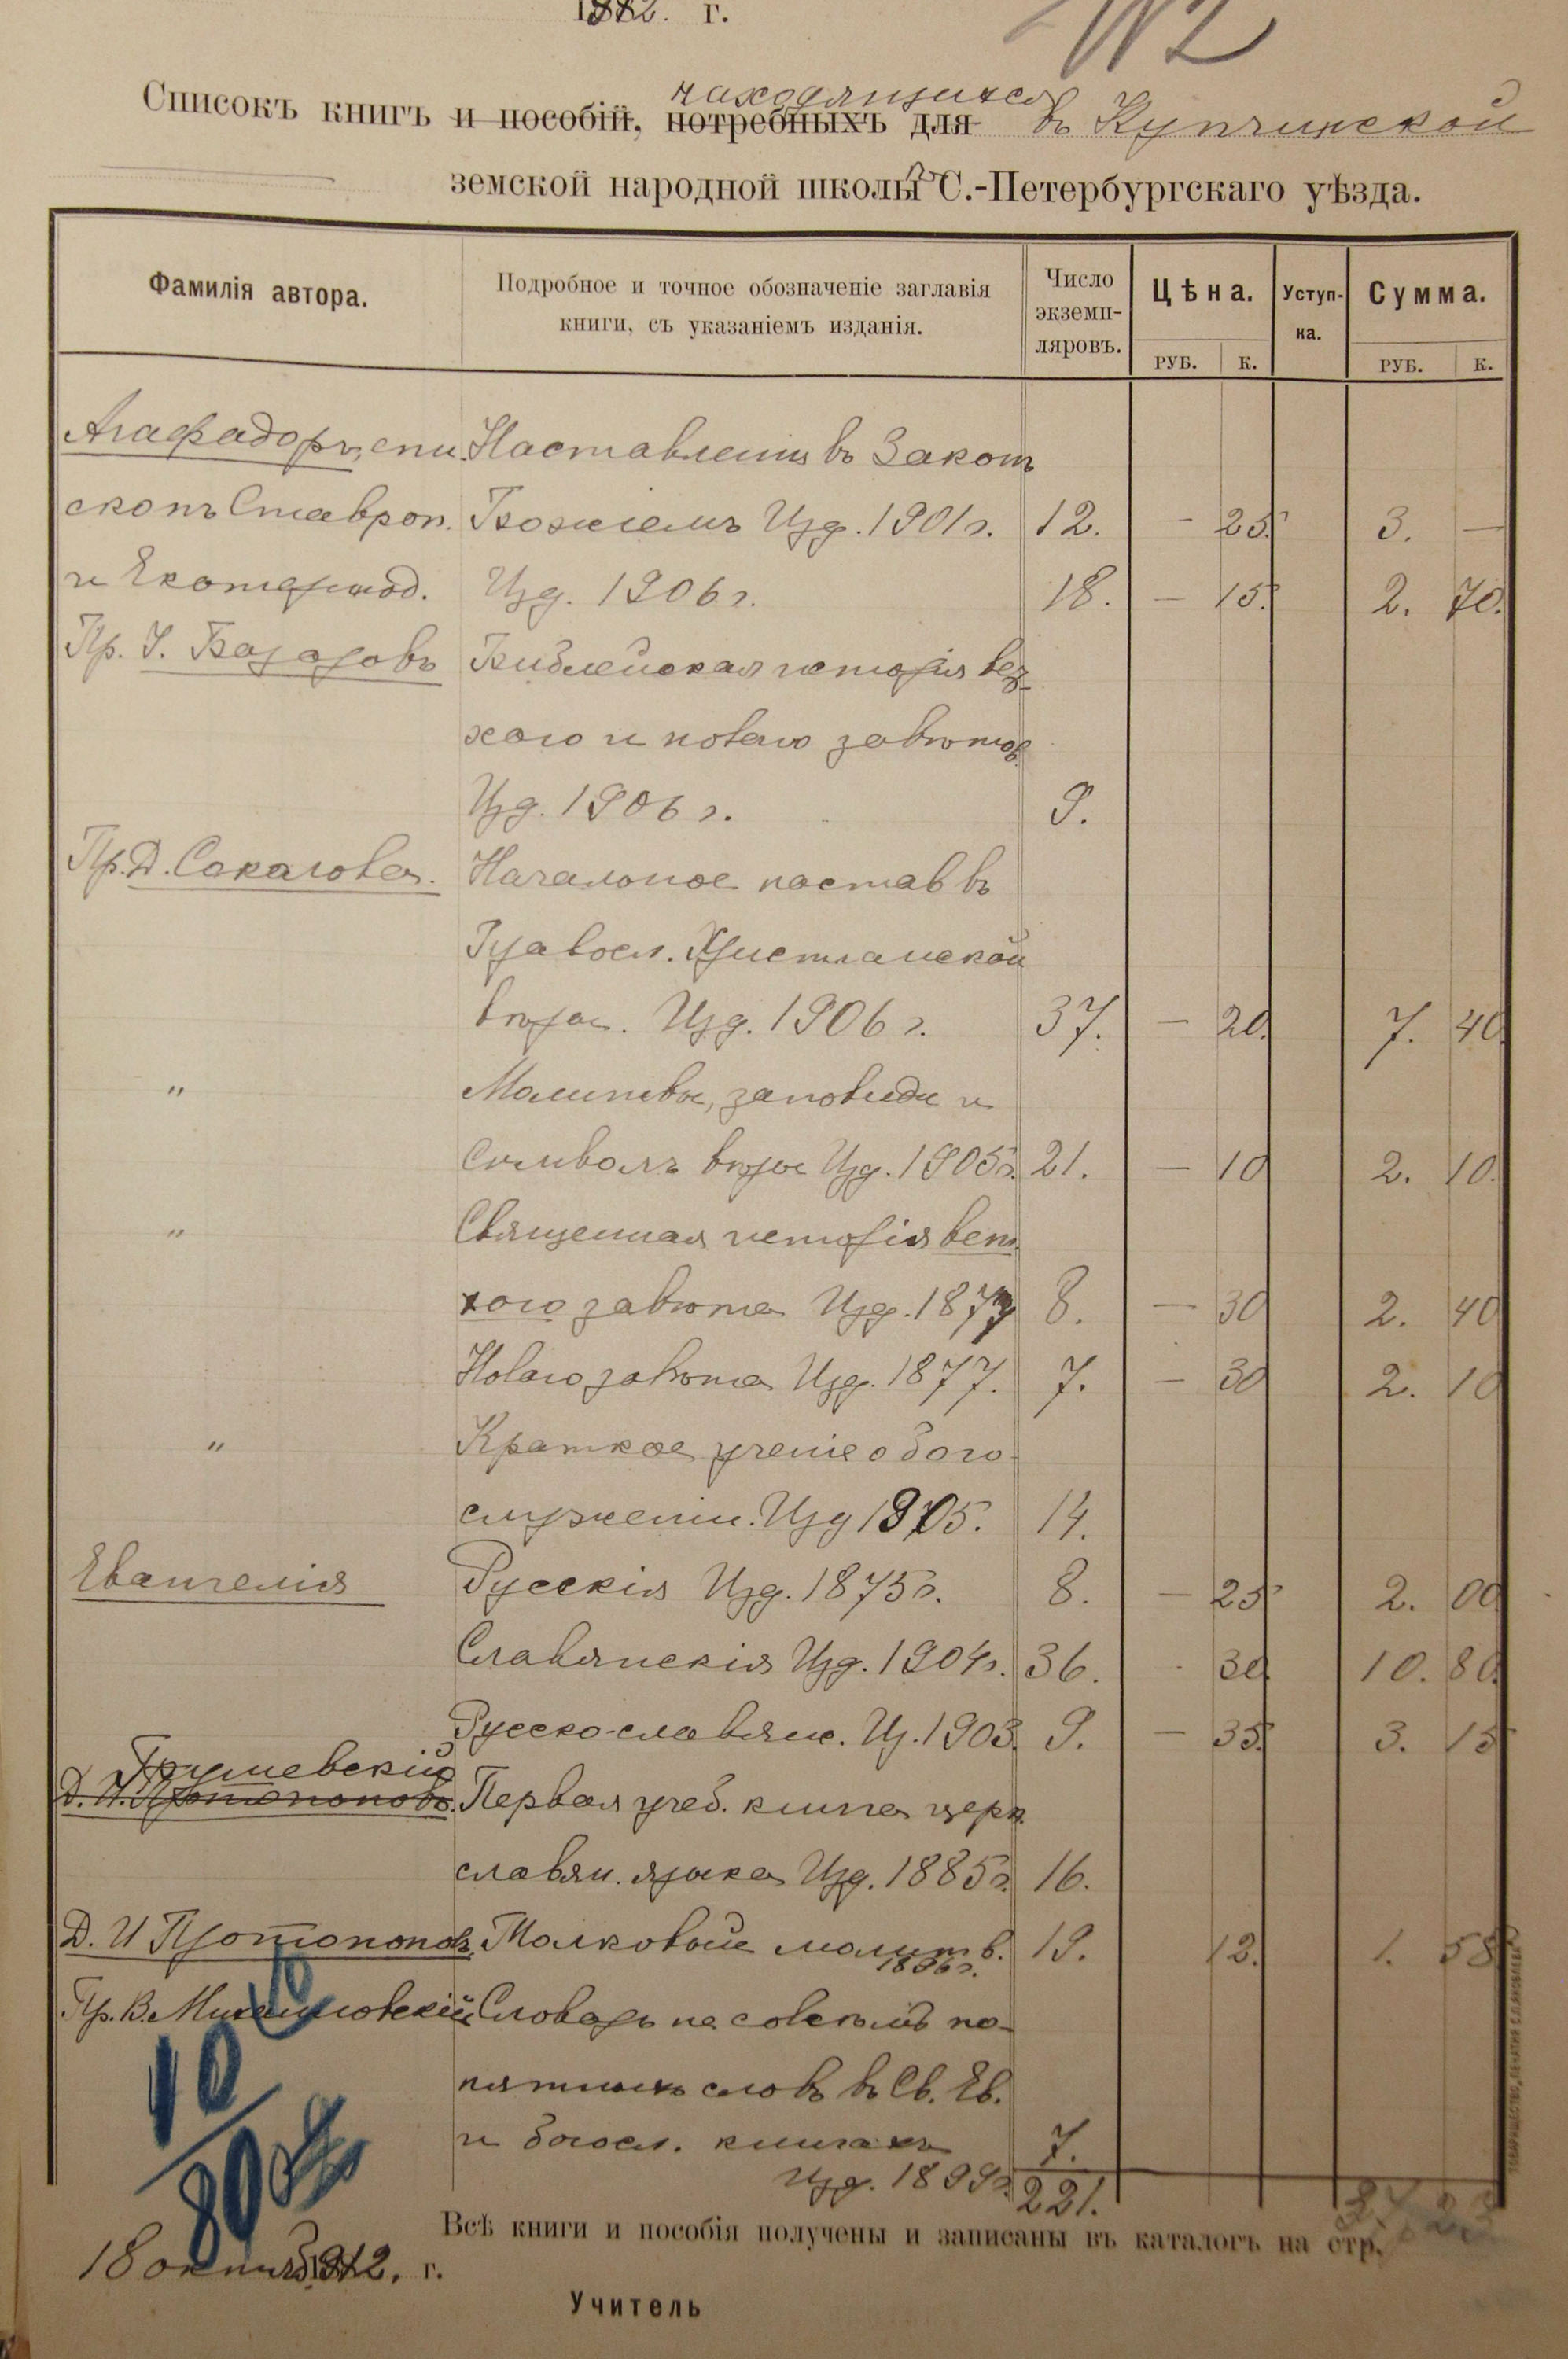 1882. г.
№2
находящихся
Списокъ книгъ и пособій, потребныхъ для въ Купчинской
земской народной школы С.-Петербургскаго уѣзда.
Фамилія автора. Подробное и точное обозначеніе заглавія книги, съ указаніемъ изданія. Число экземп-ляровъ. Цѣна. Уступ-ка. Сумма.
РУБ. К. РУБ. К.
Агафадоръ, епи- Наставленія въ Законѣ
скопъ Ставроп. Божіемъ Изд. 1901 г. 12. — 25. 3. —
и Екатеринод. Изд. 1906 г. 18. — 15. 2. 70.
Пр. І. Базаровъ Библейская исторія вет-
хаго и новаго завѣтов.
Изд. 1906 г. 9.
Пр. Д. Соколова. Начальное настав въ
Правосл. Христіанской
вѣрѣ. Изд. 1906 г. 37. — 20. 7. 40
" Молитвы, заповѣди и
Символъ вѣры Изд. 1905г. 21. — 10 2. 10.
" Священная исторія вет-
хаго завѣта Изд. 1877 8. — 30 2. 40
Новаго завѣта Изд. 1877. 7. — 30 2. 10
" Краткое ученіе о бого-
служеніи. Изд 1905. 14.
Евангелія Русскія Изд. 1875г. 8. — 25 2. 00
Славянскія Изд. 1904г. 36. - 30 10. 80.
Русско-славянс. Из. 1903. 9. — 35. 3. 15
Грушевскій
Д. И. Протопоповъ. Первая учеб. книга церк.
славян. языка Изд. 1885г. 16.
Д. И Протопоповъ Толковый молитв. 19. 12. 1. 58
1896г.
Пр. В. Михайловскій Словарь не совсѣмъ по-
нятныхъ словъ въ Св. Ев.
и богосл. книгахъ 7.
Изд. 1899г. 221. 37.23
10
80
Всѣ книги и пособія получены и записаны въ каталогъ на стр.
18 октяб. 1912. г.
Учитель